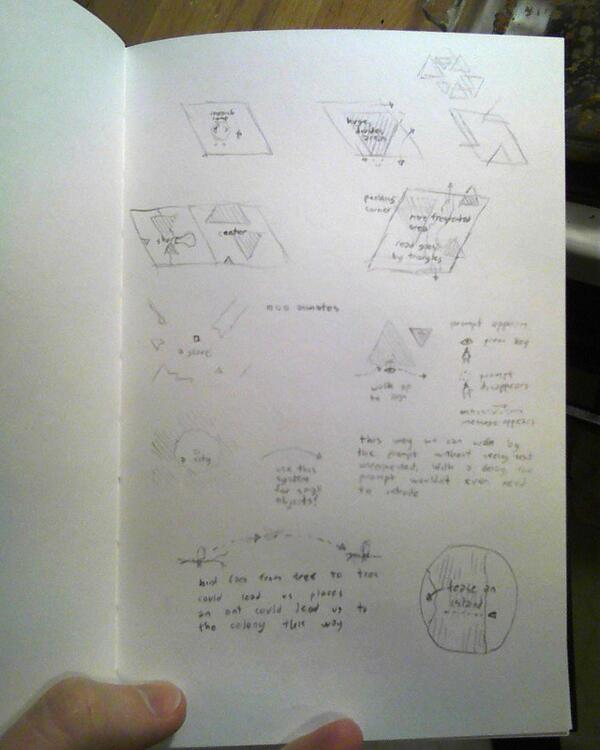 huge
divides
area
store
center
parking
corner
more frequented
area
road goes
by triangles
store
city
walk up
to sign
prompt appears
press key
prompt
disappears
message appears
use this
system
for small
objects?
this way we can walk by
the prompt without seeing text
unrequested, with a delay the
prompt wouldn't even need
to intrude
bird flies from tree to tree
could lead us places
an ant could lead us to
the colony this way
tease an
island